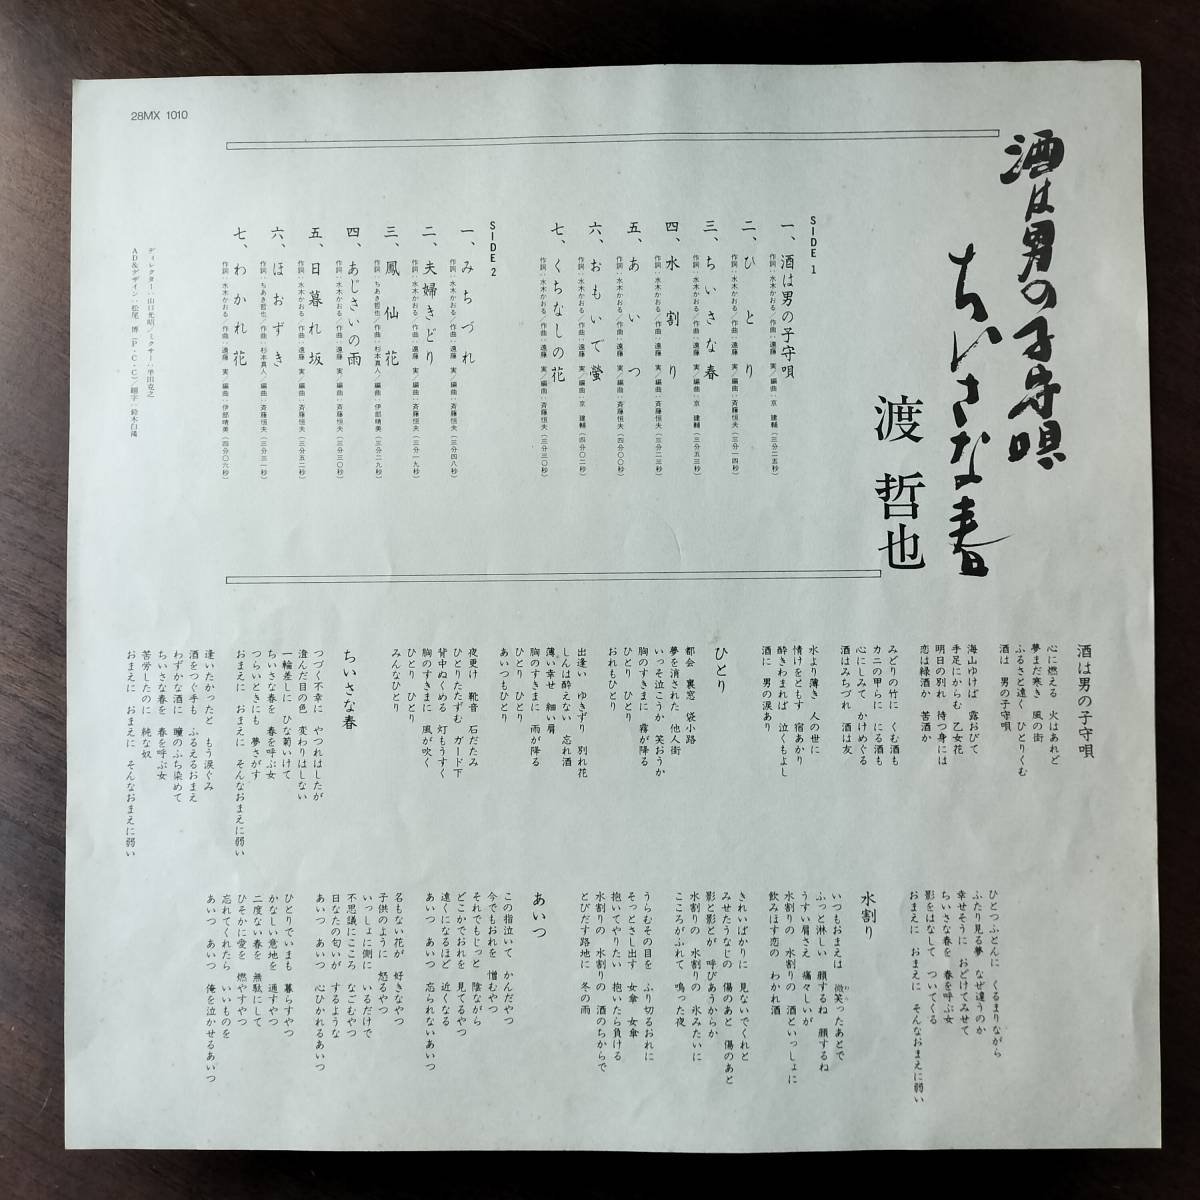 28MX 1010
酒は男の子守唄
ちいさな春
渡 哲也
SIDE 1
一、酒は男の子守唄
作詞:水木かおる/作曲:遠藤 実/編曲:京 建輔(三分二五秒)
二、ひとり
作詞:水木かおる/作曲:遠藤 実/編曲:斉藤恒夫(三分一四秒)
三、ちいさな春
作詞:水木かおる/作曲:遠藤 実/編曲:斉藤恒夫(三分五三秒)
四、水割り
作詞:水木かおる/作曲:遠藤 実/編曲:京 建輔(三分四三秒)
五、あいつ
作詞:水木かおる/作曲:遠藤 実/編曲:斉藤恒夫(四分〇〇秒)
六、おもいで螢
作詞:水木かおる/作曲:遠藤 実/編曲:京 建輔(四分〇二秒)
七、くちなしの花
作詞:水木かおる/作曲:遠藤 実/編曲:斉藤恒夫(三分三〇秒)
SIDE 2
一、みちづれ
作詞:水木かおる/作曲:遠藤 実/編曲:斉藤恒夫(三分四八秒)
二、夫婦きどり
作詞:水木かおる/作曲:遠藤 実/編曲:斉藤恒夫(三分一九秒)
三、鳳仙花
作詞:ちあき哲也/作曲:杉本真人/編曲:伊部晴美(三分二九秒)
四、あじさいの雨
作詞:水木かおる/作曲:遠藤 実/編曲:斉藤恒夫(三分三〇秒)
五、日暮れ坂
作詞:水木かおる/作曲:遠藤 実/編曲:斉藤恒夫(三分五二秒)
六、ほおずき
作詞:ちあき哲也/作曲:杉本真人/編曲:斉藤恒夫(三分三一秒)
七、わかれ花
作詞:水木かおる/作曲:遠藤 実/編曲:伊部晴美(四分〇六秒)
ディレクター:山口光昭/ミクサー:半田克之
AD&デザイン:松尾 博(P・C)/題字:鈴木白陽
酒は男の子守唄
心に燃える 火はあれど
夢まだ寒き 風の街
ふるさと遠く ひとりくむ
酒は 男の子守唄
海山ゆけば 露おびて
手足にからむ 乙女花
明日の別れ 待つ身には
恋は緑酒か 苦酒か
みどりの竹に くむ酒も
カニの甲らに にる酒も
心にしみて かけめぐる
酒はみちづれ 酒は友
水より薄き 人の世に
情けをともす 宿あかり
酔きわまれば 泣くもよし
酒に 男の涙あり
ひとり
都会 裏窓 袋小路
夢を消された 他人街
いっそ泣こうか 笑おうか
胸のすきまに 霧が降る
ひとり ひとり
おれもひとり
出逢い ゆきずり 別れ花
しんは酔えない 忘れ酒
薄い幸せ 細い肩
胸のすきまに 雨が降る
ひとり ひとり
あいつもひとり
夜更け 靴音 石だたみ
ひとりたたずむ ガード下
背中ぬくめる 灯もうすく
胸のすきまに 風が吹く
ひとり ひとり
みんなひとり
ちいさな春
つづく不幸に やつれはしたが
澄んだ目の色 変わりはしない
一輪差しに ひな菊いけて
ちいさな春を 春を呼ぶ女
つらいときにも 夢さがす
おまえに おまえに そんなおまえに弱い
逢いたかったと もう涙ぐみ
酒をつぐ手も ふるえるおまえ
わずかな酒に 瞳のふち染めて
ちいさな春を 春を呼ぶ女
苦労したのに 純な奴
おまえに おまえに そんなおまえに弱い
ひとつふとんに くるまりながら
ふたり見る夢 なぜ違うのか
幸せそうに おどけてみせて
ちいさな春を 春を呼ぶ女
影をはなして ついてくる
おまえに おまえに そんなおまえに弱い
水割り
いつもおまえは 微笑ったあとで
ふっと淋しい 顔するね 顔するね
うすい肩さえ 痛々しいが
水割りの 水割りの 酒といっしょに
飲みほす恋の わかれ酒
きれいばかりに 見ないでくれと
みせたうなじの 傷のあと 傷のあと
影と影とが 呼びあうからか
水割りの 水割りの 氷みたいに
こころがふれて 鳴った夜
うらむその目を ふり切るおれに
そっとさし出す 女傘 女傘
抱いてやりたい 抱いたら負ける
水割りの 水割りの 酒のちからで
とびだす路地に 冬の雨
あいつ
この指泣いて かんだやつ
今でもおれを 憎むやつ
それでもじっと 陰ながら
どこかでおれを 見てるやつ
遠くになるほど 近くなる
あいつ あいつ 忘られないあいつ
名もない花が 好きなやつ
子供のように 怒るやつ
いっしょに側に いるだけで
不思議にこころ なごむやつ
日なたの匂いが するような
あいつ あいつ 心ひかれるあいつ
ひとりでいまも 暮らすやつ
かなしい意地を 通すやつ
二度ない春を 無駄にして
ひそかに愛を 燃やすやつ
忘れてくれたら いいものを
あいつ あいつ 俺を泣かせるあいつ